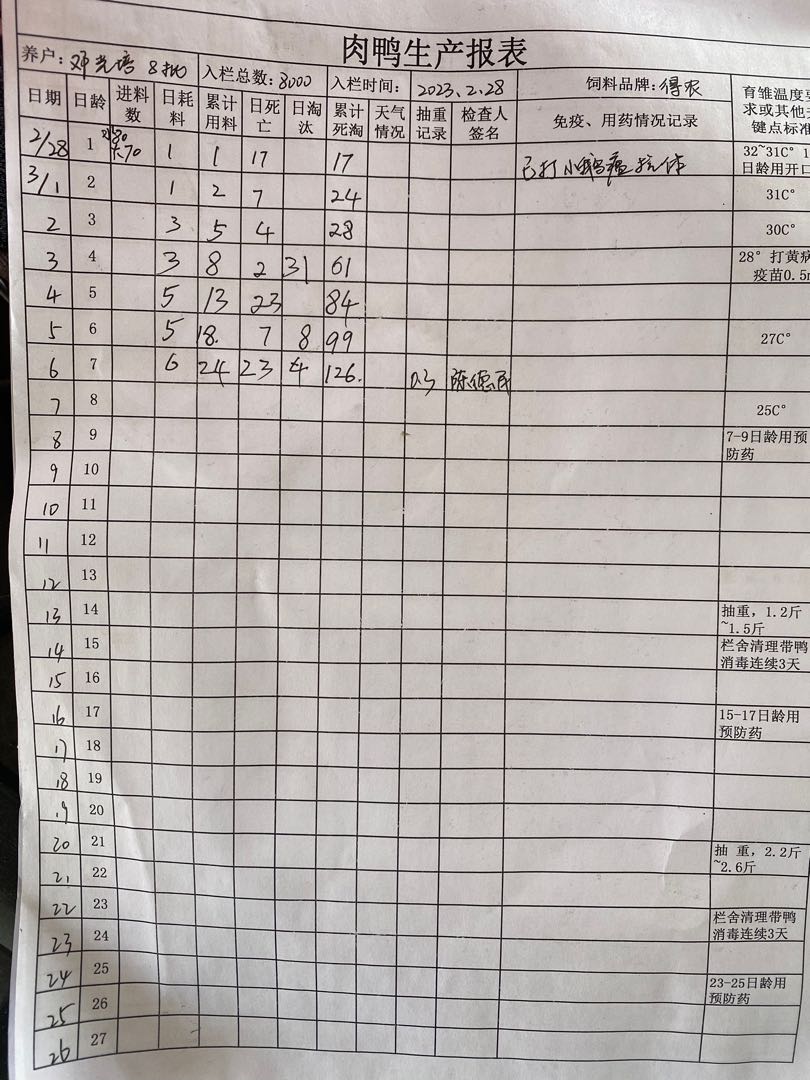 肉鸭生产报表
养户：邓光培 8批 入栏总数：3000 入栏时间： 2023.2.28 饲料品牌：得农
日期 日龄 进料数 日耗料 累计用料 日死亡 日淘汰 累计死淘 天气情况 抽重记录 检查人签名 免疫、用药情况记录 育雏温度要求或其他关键点标准
2/28 1 80 大70 1 1 17 17 已打小鹅瘟抗体 32~31C° 1日龄用开口
3/1 2 1 2 7 24 31C°
2 3 3 5 4 28 30C°
3 4 3 8 2 31 61 28° 打黄病疫苗0.5m
4 5 5 13 23 84
5 6 5 18. 7 8 99 27C°
6 7 6 24 23 4 126. 0.3 陈德民
7 8 25C°
8 9 7-9日龄用预防药
9 10
10 11
11 12
12 13
13 14 抽重，1.2斤~1.5斤
14 15 栏舍清理带鸭消毒连续3天
15 16
16 17 15-17日龄用预防药
17 18
18 19
19 20
20 21 抽 重，2.2斤~2.6斤
21 22
22 23 栏舍清理带鸭消毒连续3天
23 24
24 25 23-25日龄用预防药
25 26
26 27